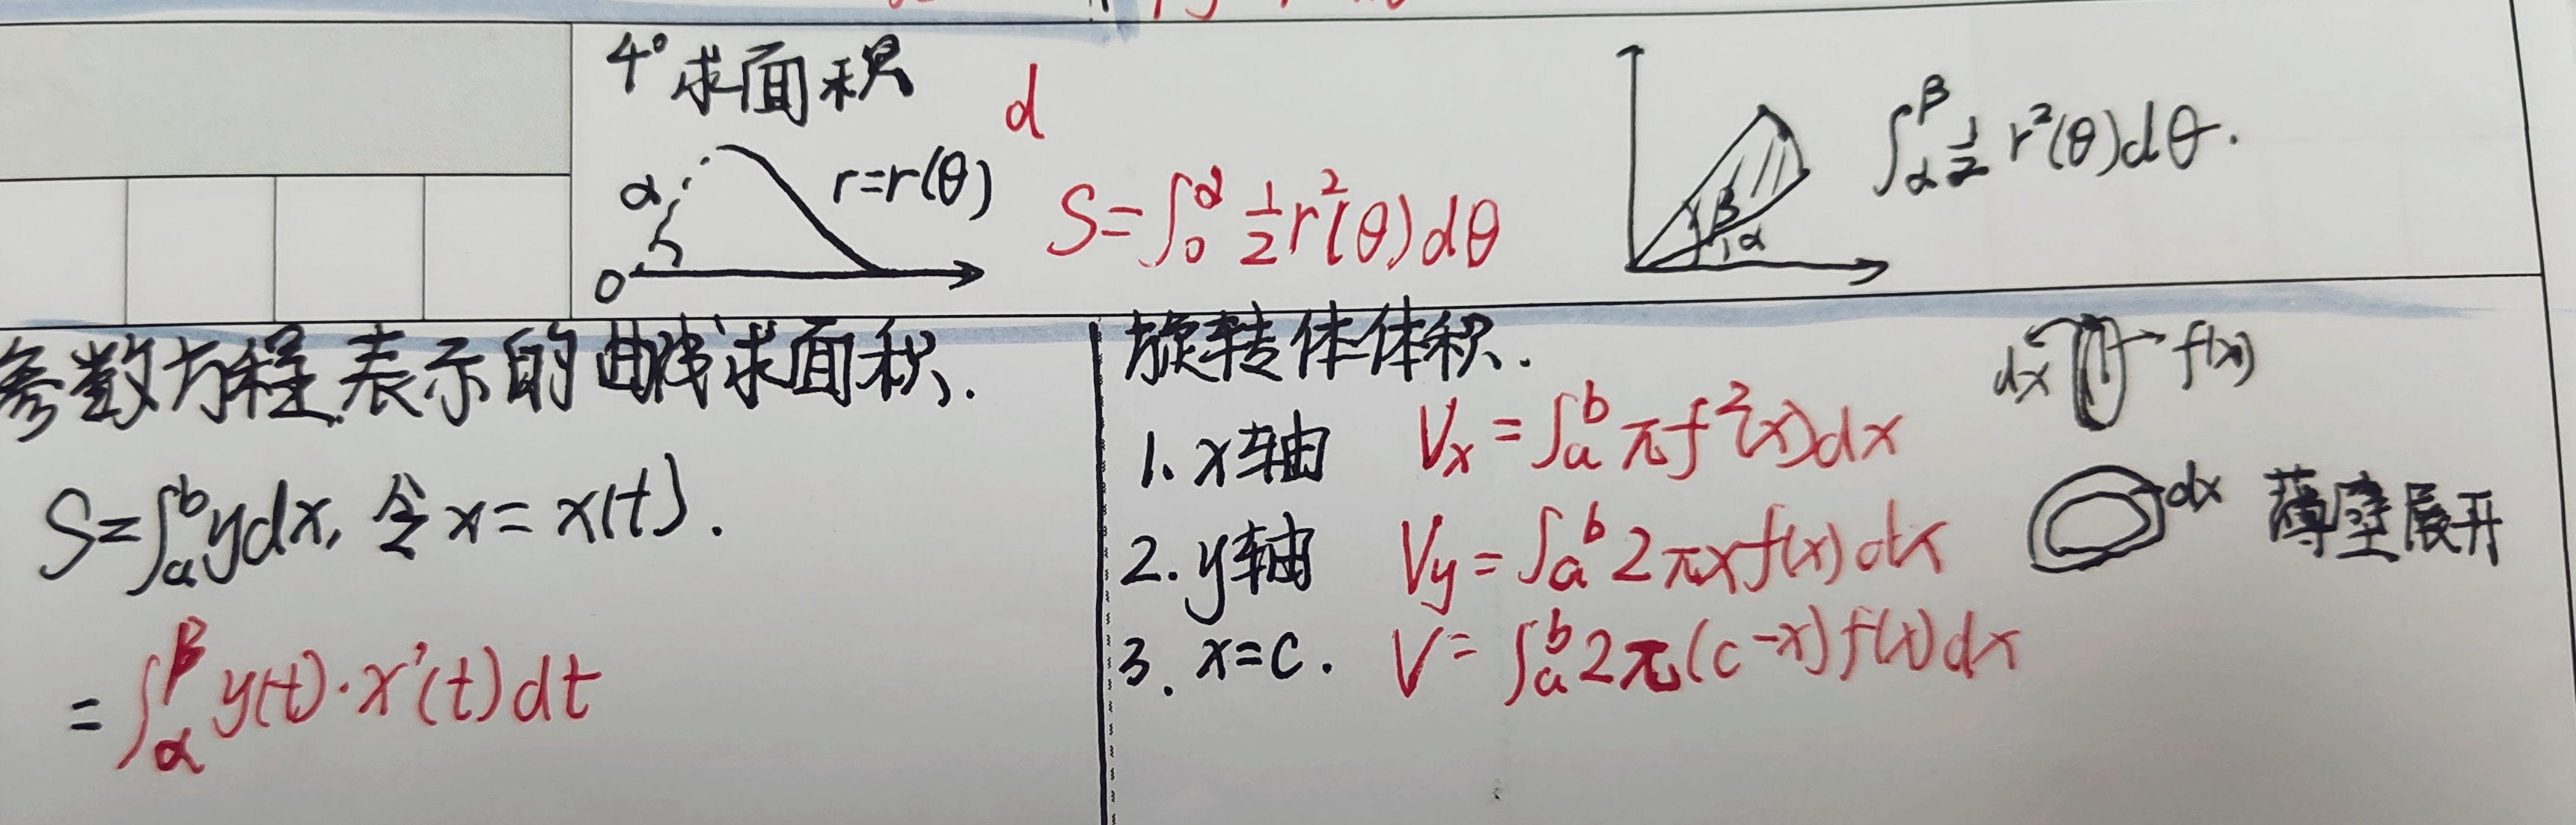 4° 求面积
d
α
r=r(θ)
O
S=∫₀^α ½r²(θ)dθ
β
α
∫_α^β ½ r²(θ)dθ.
参数方程表示的曲线求面积.
S=∫_a^b ydx, 令x=x(t).
=∫_α^β y(t)·x'(t)dt
旋转体体积.
dx f(x)
1. x轴 Vx=∫_a^b πf²(x)dx
2. y轴 Vy=∫_a^b 2πxf(x)dx
dx 薄壁展开
3. x=c. V=∫_a^b 2π(c-x)f(x)dx